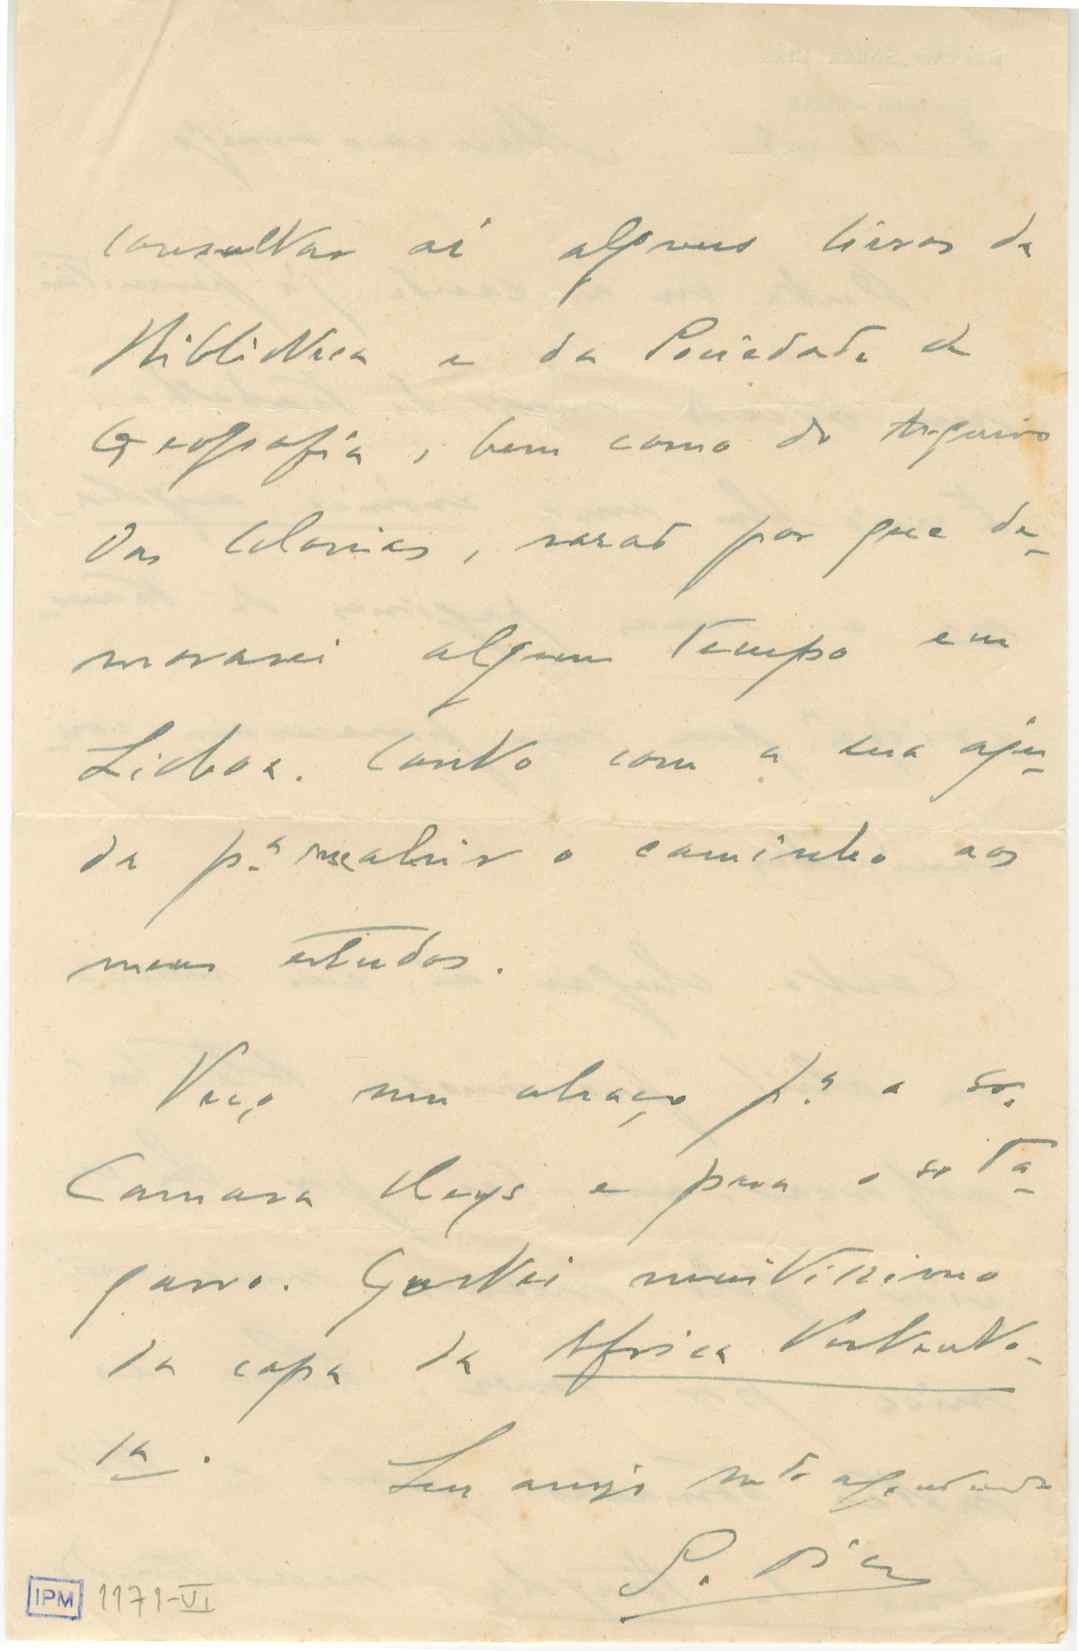 consultar aí alguns livros da
Biblioteca e da Sociedade de
Geografia, bem como do Arquivo
das Colonias, razaõ por que de-
morarei algum tempo em
Lisboa. Conto com a sua aju-
da p.ª me abrir o caminho aos
meus estudos.
Peço um abraço p.ª o sr.
Camara Reys e para o sr Ta-
garro. Gostei muitissimo
da capa da Africa Portento-
sa.
Seu amigo mto agradecido
S. Dias
IPM 1171-VI